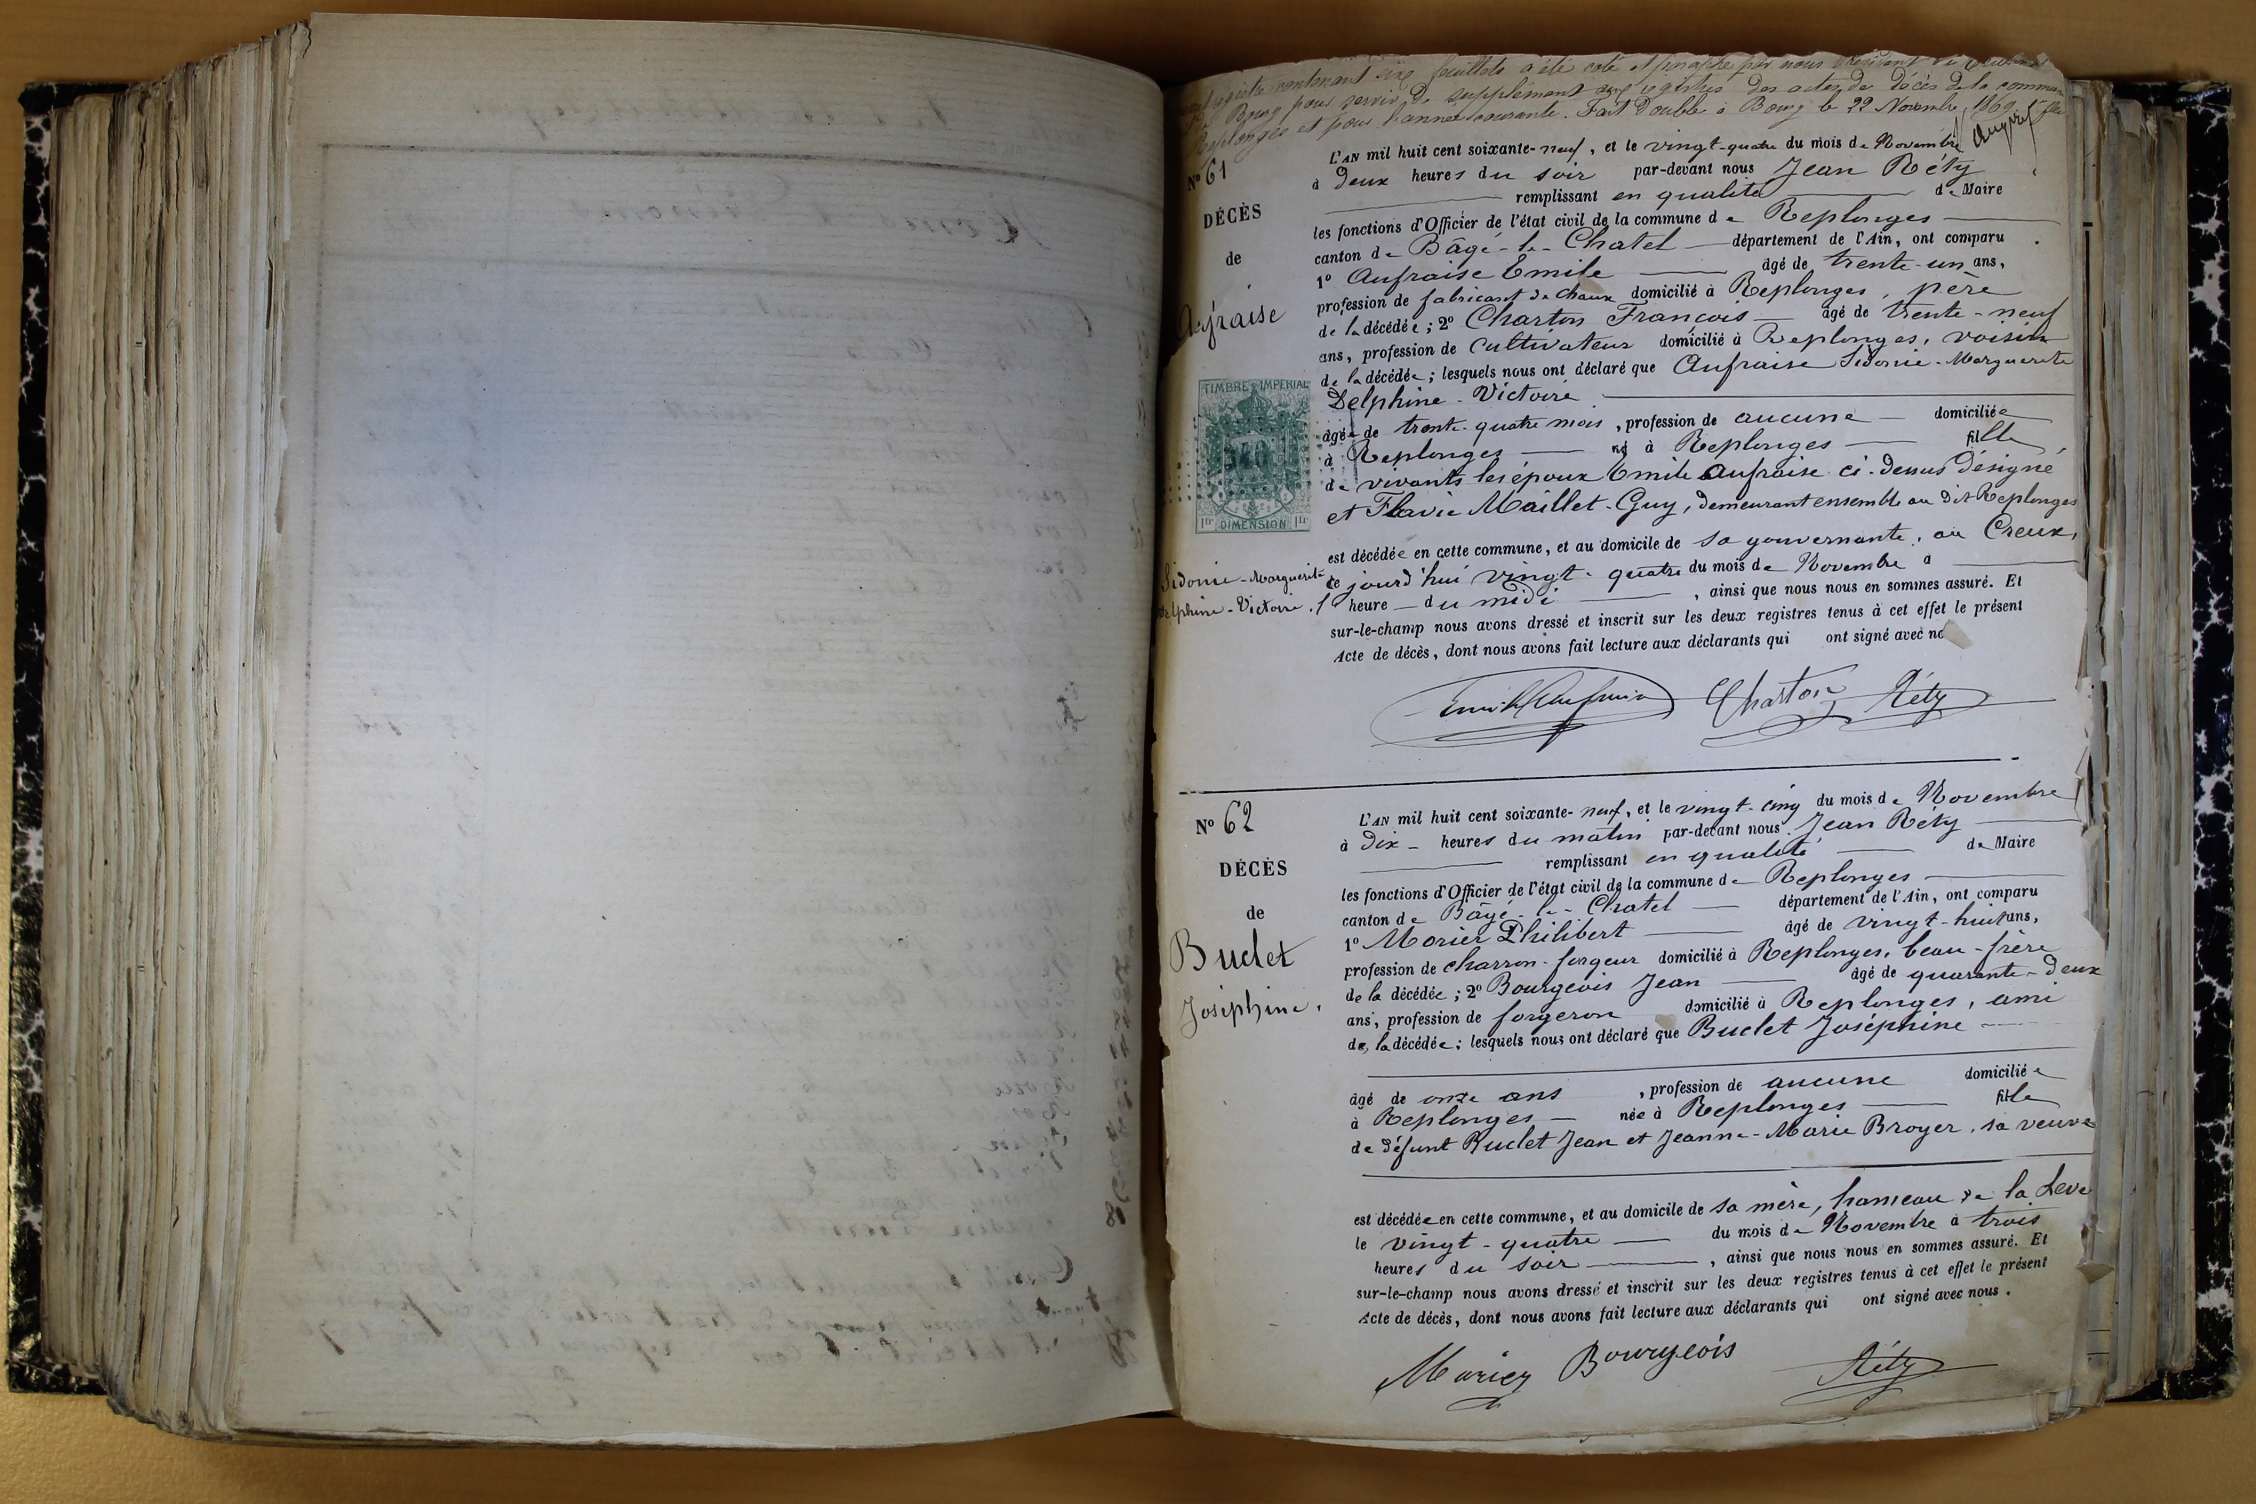 registre contenant six feuillets a été coté et paraphé par nous Président du
Bourg pour servir de supplément aux registres des actes de décès de la commune
Replonges et pour l'année courante. Fait double à Bourg le 22 Novembre 1869
N° 61
DÉCÈS
de
Aufraise
Sidonie-Marguerite
Delphine-Victoire.
TIMBRE IMPÉRIAL
1fr DIMENSION 1fr
L'AN mil huit cent soixante-neuf, et le vingt-quatre du mois de Novembre
à deux heures du soir par-devant nous Jean Réty
remplissant en qualité de Maire
les fonctions d'Officier de l'état civil de la commune de Replonges
canton de Bâgé-le-Chatel département de l'Ain, ont comparu
1° Aufraise Emile âgé de trente-un ans,
profession de fabricant de chaux domicilié à Replonges, père
de la décédée; 2° Charton François âgé de trente-neuf
ans, profession de cultivateur domicilié à Replonges, voisin
de la décédée; lesquels nous ont déclaré que Aufraise Sidonie-Marguerite
Delphine-Victoire
âgée de trente-quatre mois, profession de aucune domiciliée
à Replonges né à Replonges fille
de vivants les époux Emile Aufraise ci-dessus désigné
et Flavie Maillet-Guy, demeurant ensemble au dit Replonges
est décédée en cette commune, et au domicile de sa gouvernante, au Creux,
ce jourd'hui vingt-quatre du mois de Novembre à
heure du midi, ainsi que nous nous en sommes assuré. Et
sur-le-champ nous avons dressé et inscrit sur les deux registres tenus à cet effet le présent
Acte de décès, dont nous avons fait lecture aux déclarants qui ont signé avec no
Emile Aufraise Charton Réty
N° 62
DÉCÈS
de
Buclet
Joséphine.
L'AN mil huit cent soixante-neuf, et le vingt-cinq du mois de Novembre
à dix heures du matin par-devant nous Jean Réty
remplissant en qualité de Maire
les fonctions d'Officier de l'état civil de la commune de Replonges
canton de Bâgé-le-Chatel département de l'Ain, ont comparu
1° Morier Philibert âgé de vingt-huit ans,
profession de charron-forgeur domicilié à Replonges, beau-frère
de la décédée; 2° Bourgeois Jean âgé de quarante-deux
ans, profession de forgeron domicilié à Replonges, ami
de la décédée; lesquels nous ont déclaré que Buclet Joséphine
âgé de onze ans, profession de aucune domiciliée
à Replonges née à Replonges fille
de défunt Buclet Jean et Jeanne-Marie Broyer, sa veuve
est décédée en cette commune, et au domicile de sa mère, hameau de la Leve
le vingt-quatre du mois de Novembre à trois
heures du soir, ainsi que nous nous en sommes assuré. Et
sur-le-champ nous avons dressé et inscrit sur les deux registres tenus à cet effet le présent
Acte de décès, dont nous avons fait lecture aux déclarants qui ont signé avec nous.
Morier Bourgeois Réty